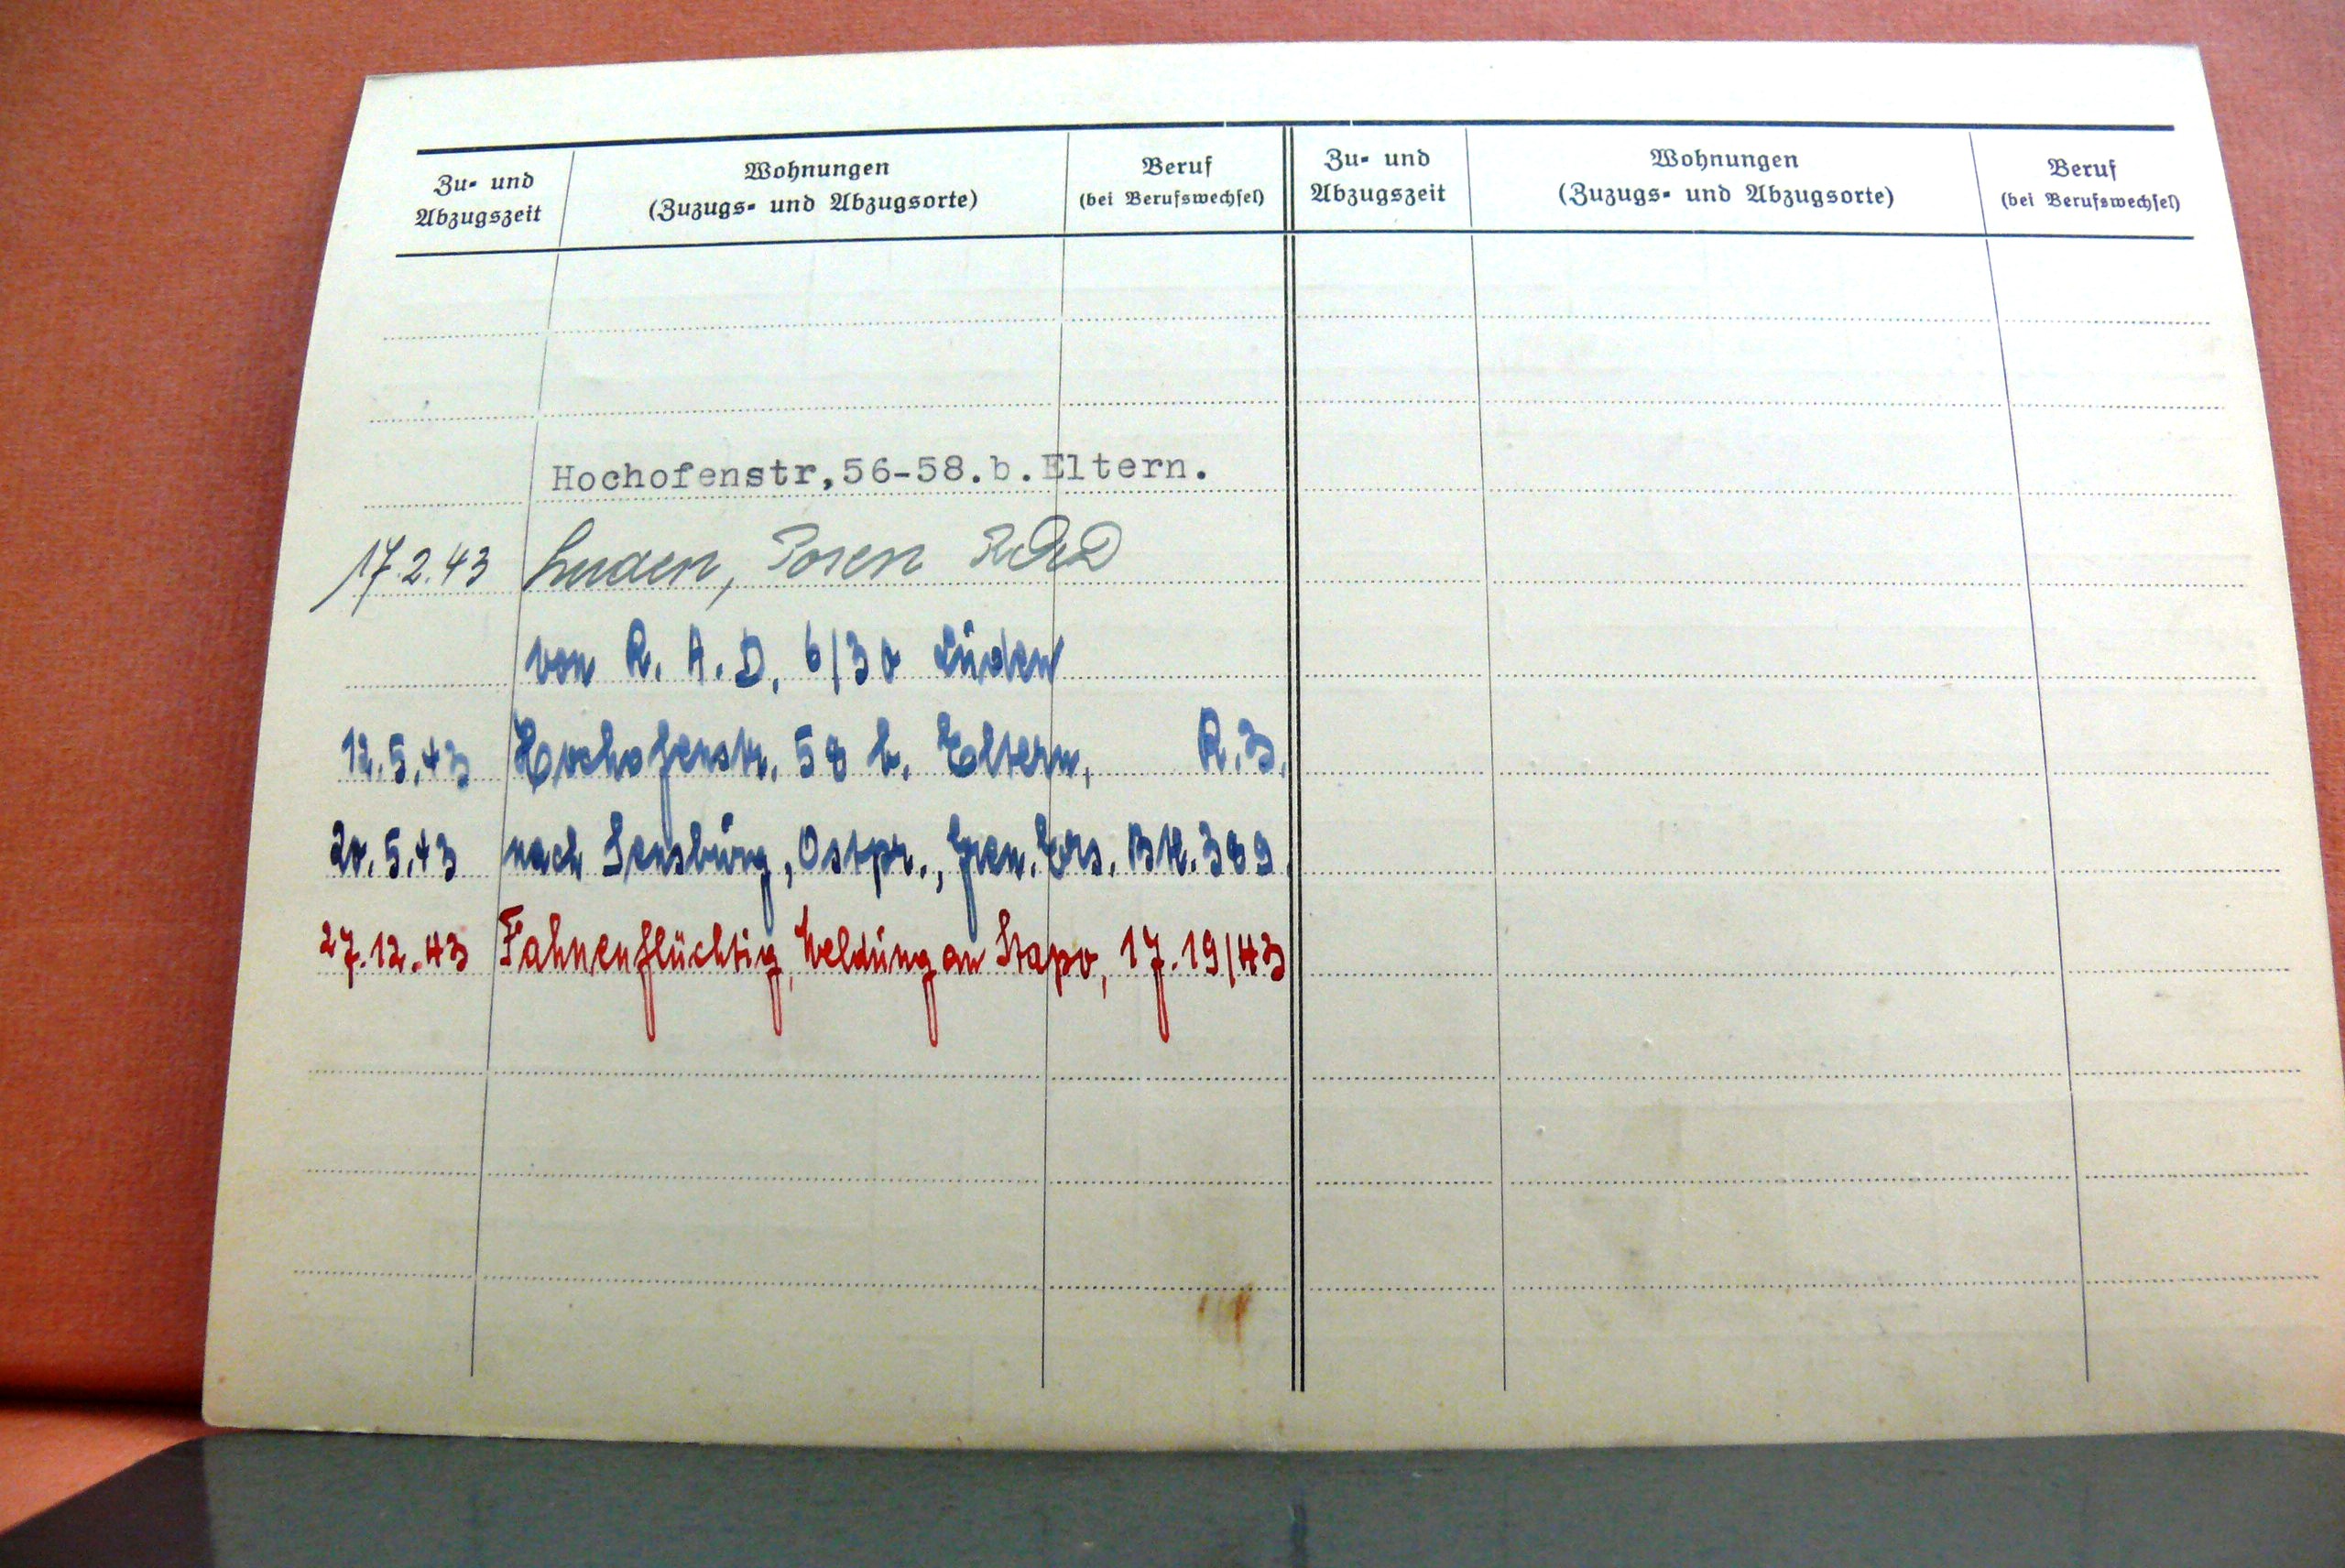 Zu- und Abzugszeit
Wohnungen
(Zuzugs- und Abzugsorte)
Beruf
(bei Berufswechsel)
Zu- und Abzugszeit
Wohnungen
(Zuzugs- und Abzugsorte)
Beruf
(bei Berufswechsel)
Hochofenstr,56-58.b.Eltern.
17.2.43 Luden, Posen RAD
von R. A. D. 6/30 Lüden
12.5.43 Hochofenstr. 58 b. Eltern, R.B.
20.5.43 nach Sensburg, Ostpr., Gren. Ers. Btl. 389.
27.12.43 Fahnenflüchtig, Meldung an Stapo, 17.19/43